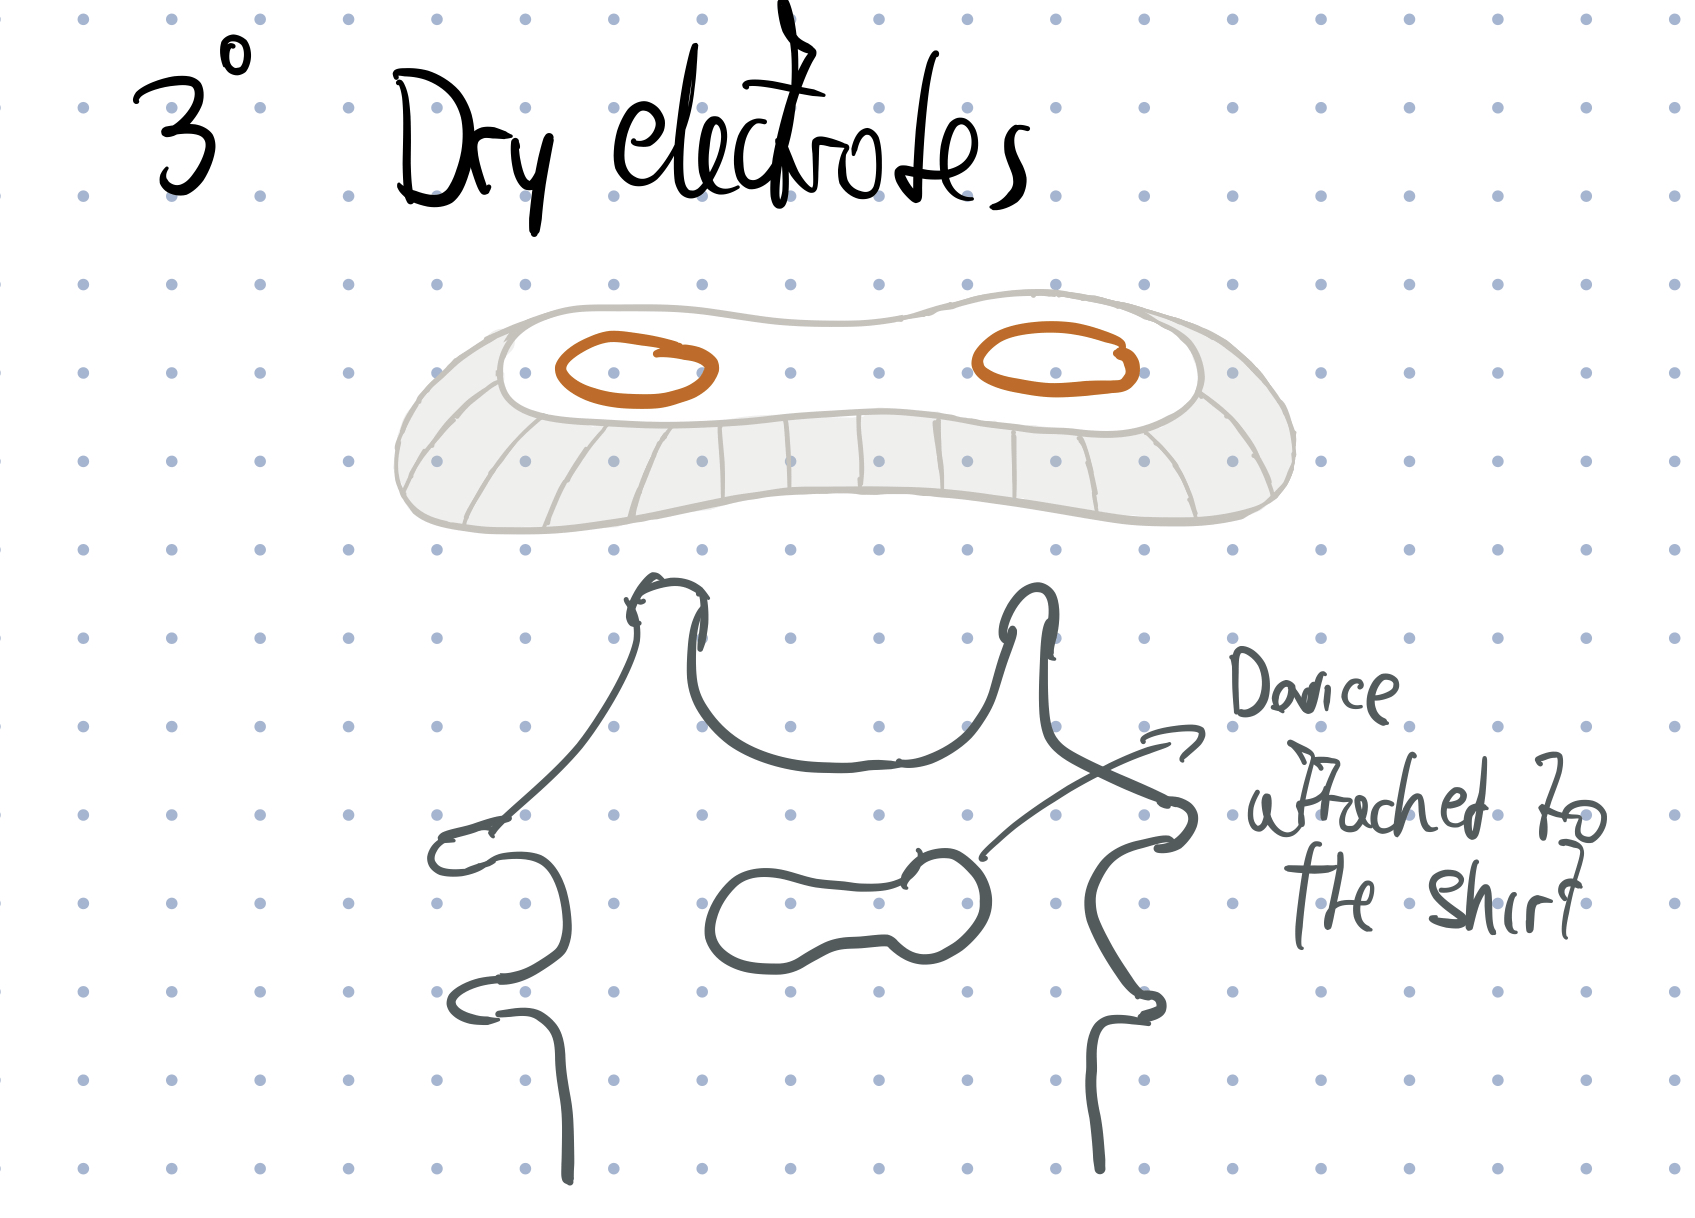 3° Dry electrodes
Device
attached to
the shirt